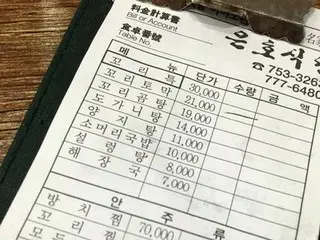 料金計算書
Bill or Account
食卓番號
Table No.
은호식
☎ 753-3263
777-6480
메 뉴 단가 수량 금 액
꼬 리 특 30,000
꼬리토막 21,000
꼬리곰탕 19,000
도가니탕 14,000
양 지 탕 11,000
소머리국밥 10,000
설 렁 탕 8,000
해 장 국 7,000
안 주 류
방 치 찜 70,000
꼬 리 찜